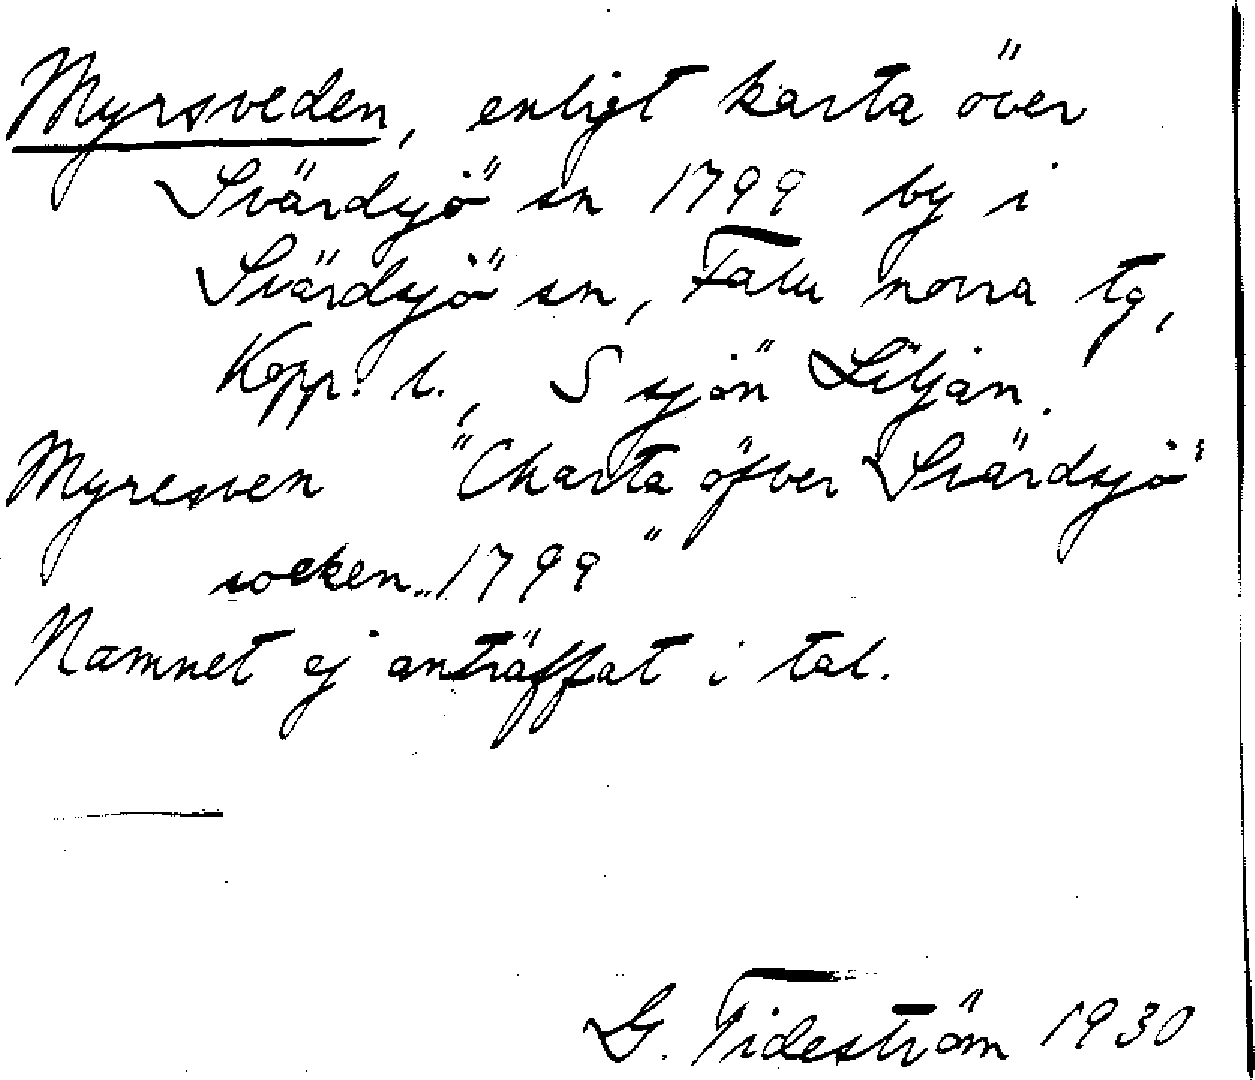 Myrsveden, enligt karta över
Svärdsjö sn 1799 by i
Svärdsjö sn, Falu norra tg,
Kopp. l., S sjön Liljan.
Myresven "Charta öfver Svärdsjö
socken.. 1799"
Namnet ej anträffat i tal.
G. Tideström 1930